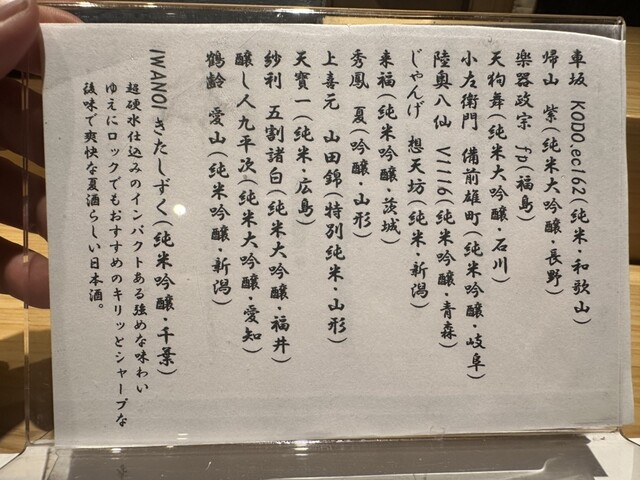 車坂 KODO.ec162(純米・和歌山)
帰山 紫(純米大吟醸・長野)
楽器政宗 fp(福島)
天狗舞(純米大吟醸・石川)
小左衛門 備前雄町(純米吟醸・岐阜)
陸奥八仙 V1116(純米吟醸・青森)
じゃんげ 想天坊(純米・新潟)
来福(純米吟醸・茨城)
秀鳳 夏(吟醸・山形)
上喜元 山田錦(特別純米・山形)
天寳一(純米・広島)
紗利 五割諸白(純米大吟醸・福井)
醸し人九平次(純米大吟醸・愛知)
鶴齢 愛山(純米吟醸・新潟)
IWANOI きたしずく(純米吟醸・千葉)
超硬水仕込みのインパクトある強めな味わい
ゆえにロックでもおすすめのキリッとシャープな
後味で爽快な夏酒らしい日本酒。